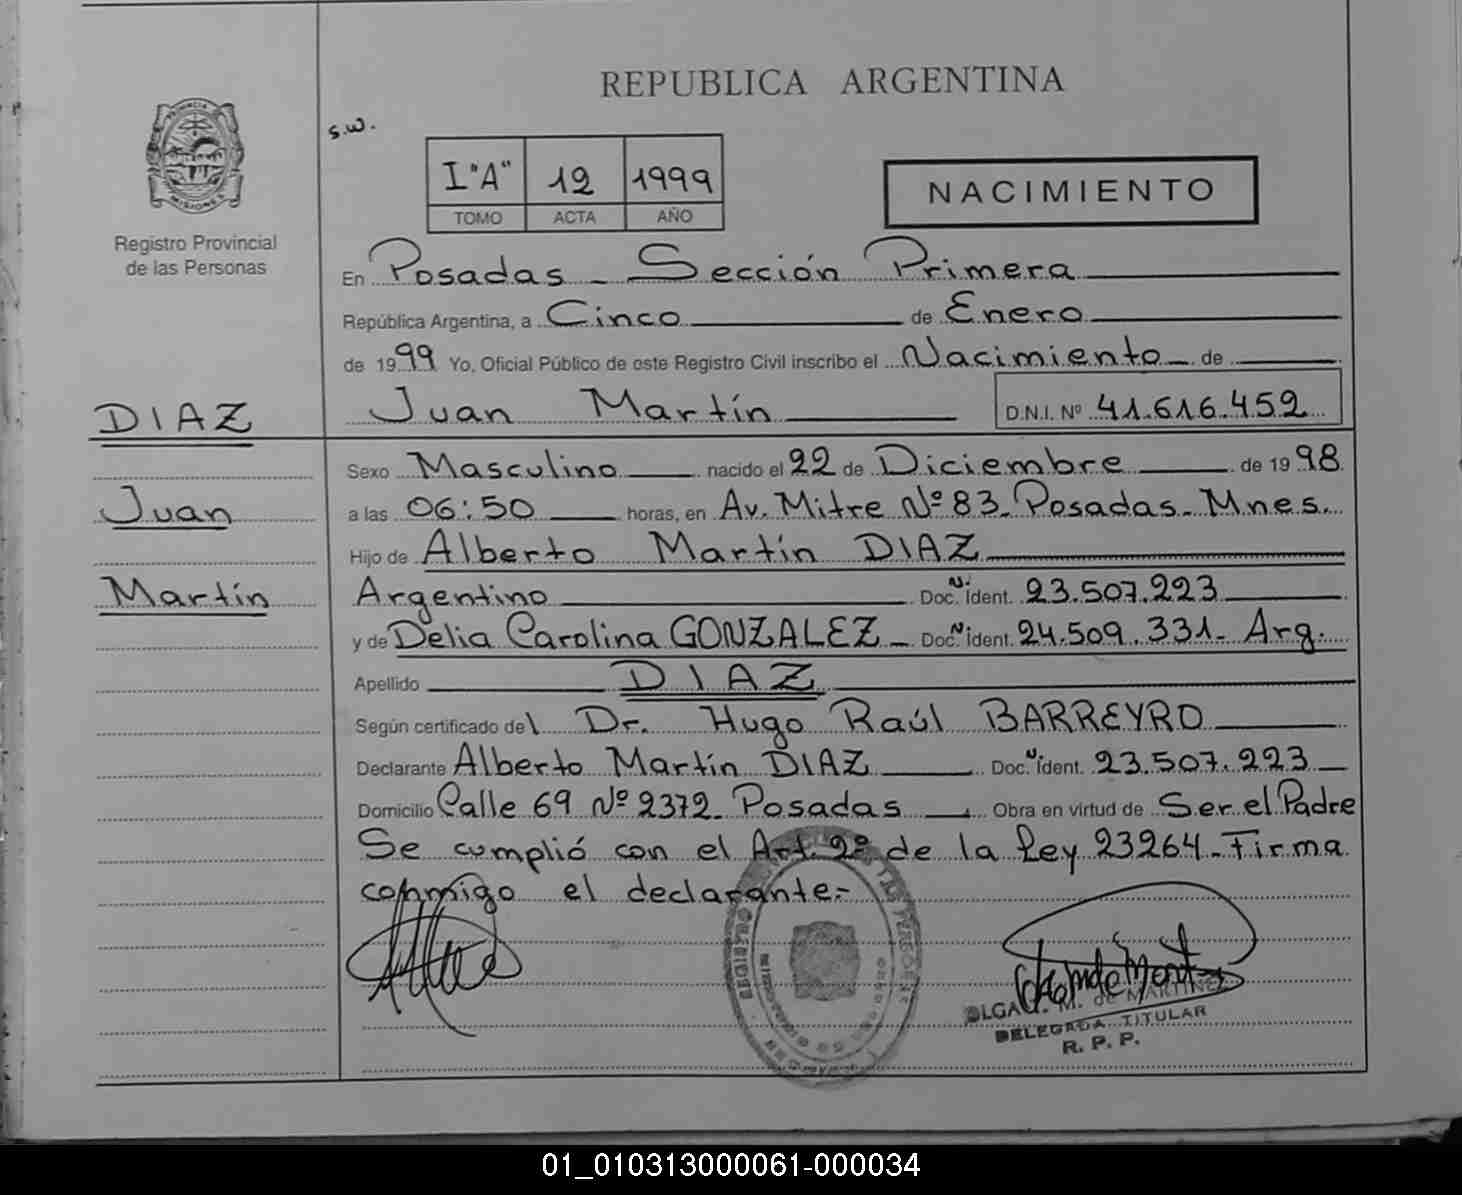 REPUBLICA ARGENTINA
PROVINCIA
MISIONES
Registro Provincial
de las Personas
s.w.
I "A" 12 1999
TOMO ACTA AÑO
NACIMIENTO
En Posadas - Sección Primera
República Argentina, a Cinco de Enero
de 1999 Yo, Oficial Público de este Registro Civil inscribo el Nacimiento de
DIAZ
Juan Martín D.N.I. Nº 41.616.452
Sexo Masculino nacido el 22 de Diciembre de 1998
Juan
a las 06:50 horas, en Av. Mitre Nº 83 - Posadas - Mnes.
Hijo de Alberto Martín DIAZ
Martín
Argentino Doc. N. Ident. 23.507.223
y de Delia Carolina GONZALEZ - Doc. N ident. 24.509.331 - Arg.
Apellido DIAZ
Según certificado del Dr. Hugo Raúl BARREYRO
Declarante Alberto Martín DIAZ Doc. N. ident. 23.507.223
Domicilio Calle 69 Nº 2372 - Posadas Obra en virtud de Ser el Padre
Se cumplió con el Art. 2º de la Ley 23264 - Firma
conmigo el declarante.-
OLGA M. de MARTINEZ
DELEGADA TITULAR
R. P. P.
01_010313000061-000034